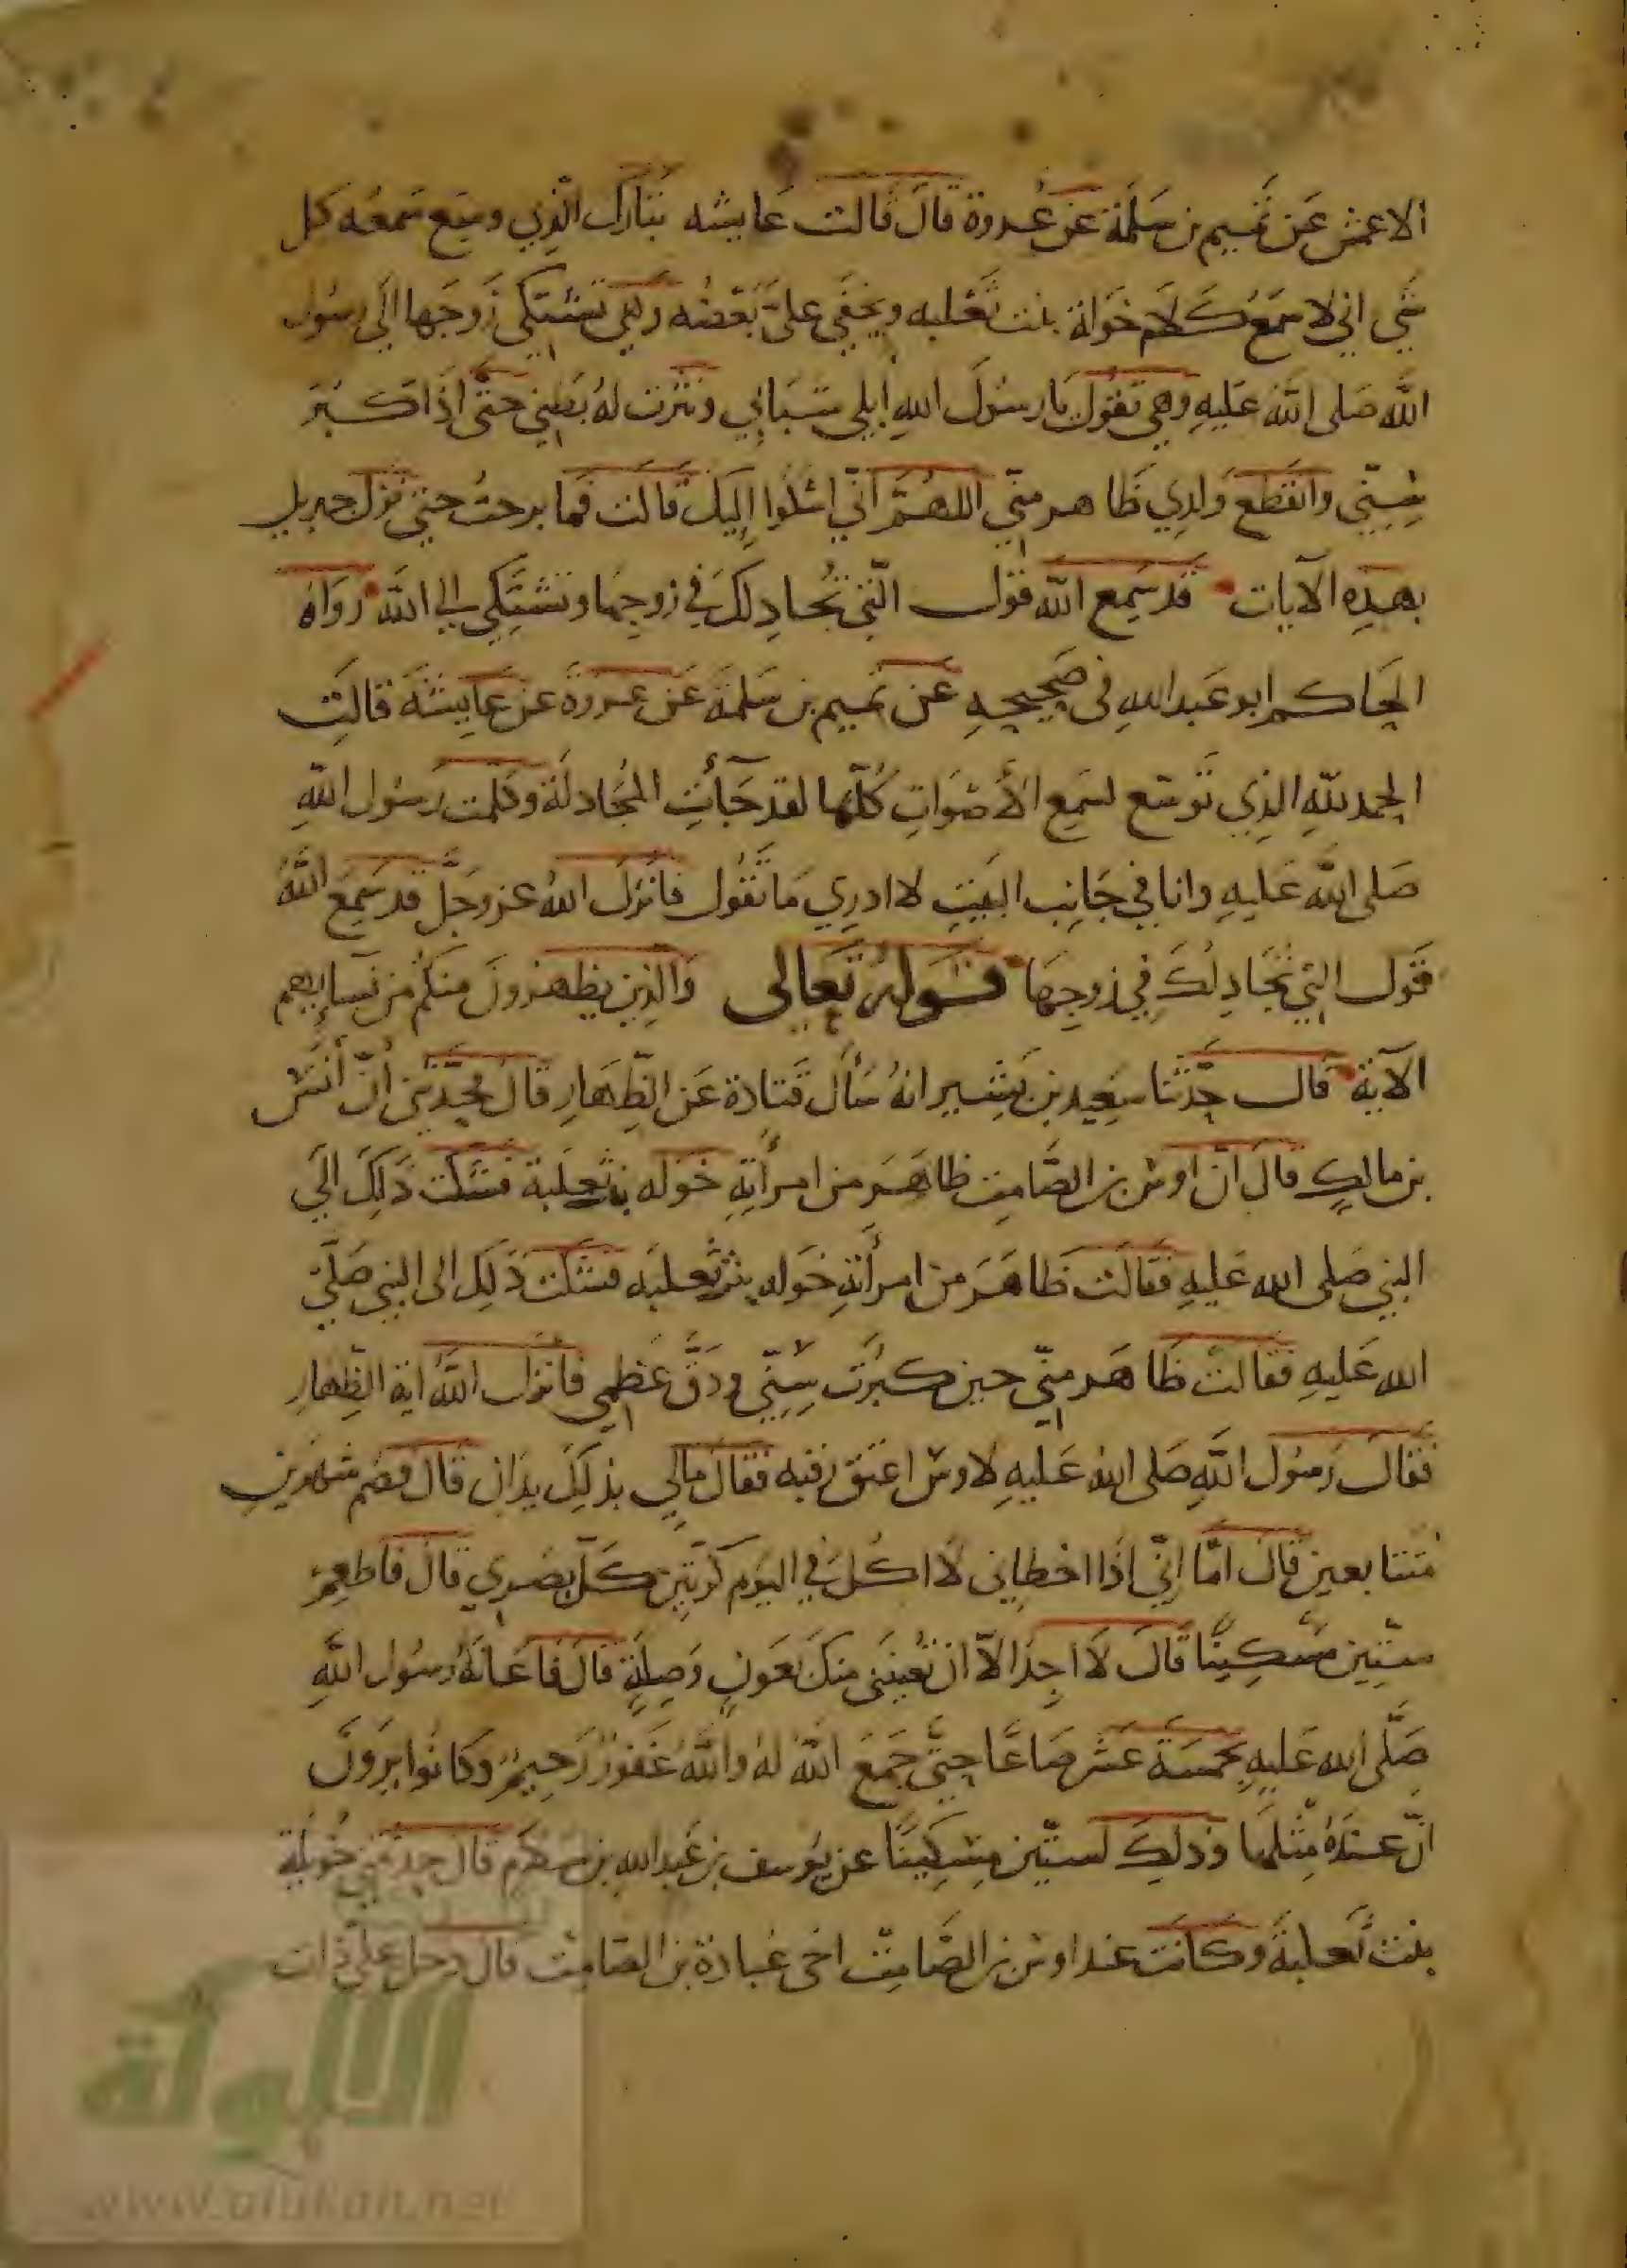 الاعمش عَن تميم بن سَلَمة عَن عُروة قالَ قالت عَايشه تبَارَك الّذي وسِع سَمعُه كل
شي اني لاسَمعُ كَلَام خَولة بنت ثَعْلبه ويخفَى علىَّ بَعْضُه وَهي تَشتكي زَوجَها الَي رسُول
اللَّه صَلى اللَّه عَليهِ وهي تقوُل يَا رسُولَ اللهِ ابلى شبَابي ونثرت لهُ بَطني حتَّى اذَا كبُرَ
سِنِّي وانقطع وَلدِي ظَاهر منّي اللهُمَّ انّي اشكُوا إليك قَالَت فَما برحتُ حتي نزل جبريل
بهذِه الآيات قد سَمِع اللّه قول الّتي تُجادِلكَ في زوجِها وتشتَكِي الي اللَّه روَاهُ
الحاكم ابو عَبد اللهِ في صَحيحِهِ عَن تميم بن سَلمَة عَن عروة عن عَايِشَة قالَت
الحمد للهِ الذِي تَوسّع لسَمِع الأَصْوَاتِ كُلّها لقد جَآئتِ المُجَادلَة وكلّمت رَسُول اللهِ
صَلى اللَّه عَليهِ وانا في جَانِب البَيتِ لا ادرِي مَا تَقُول فانزَلَ اللهُ عزوجَلَّ قد سَمِعَ اللَّهُ
قَول التي تُجَادِلُكَ في زوجِهَا قَولهُ تَعَالى وَالّذِين يظهرُونَ منكُم من نسآئِهِم
الآية قال حدّثنا سَعِيد بن بَشِير انهُ سَأل قَتادة عَن الظِّهَارِ قال فحدّثني أنّ أنَس
بن مالِكٍ قالَ انّ اوس بن الصَّامِت ظاهَرَ من امرأتِهِ خَوله بنت ثعلبة فشكت ذَلِكَ الَي
النبي صَلى الله عَليهِ فقَالَت ظَاهَرَ من امرأَتهِ خَوله بنت ثعلبَه فشكت ذَلِك الى النبي صَلَّى
الله عَليهِ فقالت ظَاهر منّي حين كبُرَت سِنّي ودَقَّ عَظمي فانزل اللَّهُ اية الظِّهارِ
فقالَ رَسُول اللَّهِ صَلى اللهُ عَليهِ لاوس اعتق رقبه فقال مالي بذلِكَ يدَان قَال فصُم شَهرَينِ
مُتتابعين قالَ امّا إنّي اذَا اخطاني لَا اكُل في اليَوم كَرّتين كَلّ بصَري قال فاطعِم
ستّين مسكينًا قالَ لَا اجِد الاّ ان تُعينَني منكَ بعَونٍ وَصِلةٍ قالَ فَاعَانَهُ رسُول اللَّهِ
صَلَّى الله عَليهِ بخمسَة عَشر صَاعًا حتّي جَمَعَ اللَّهُ لهُ واللَّهُ غَفورٌ رَحِيمٌ وَكانُوا يَرَونَ
انّ عندَهُ مِثْلهَا وَذلِكَ لستّين مِسكِينًا عن يوُسف بن عَبد اللهِ بن سَلام قال حدثتني خُويلة
بنت ثَعلبَة وكانَت عند اوس بن الصَّامِت اخى عُبادة بن الصَامِت قال دخل علىّ ذات
الألوكة
www.alukah.net